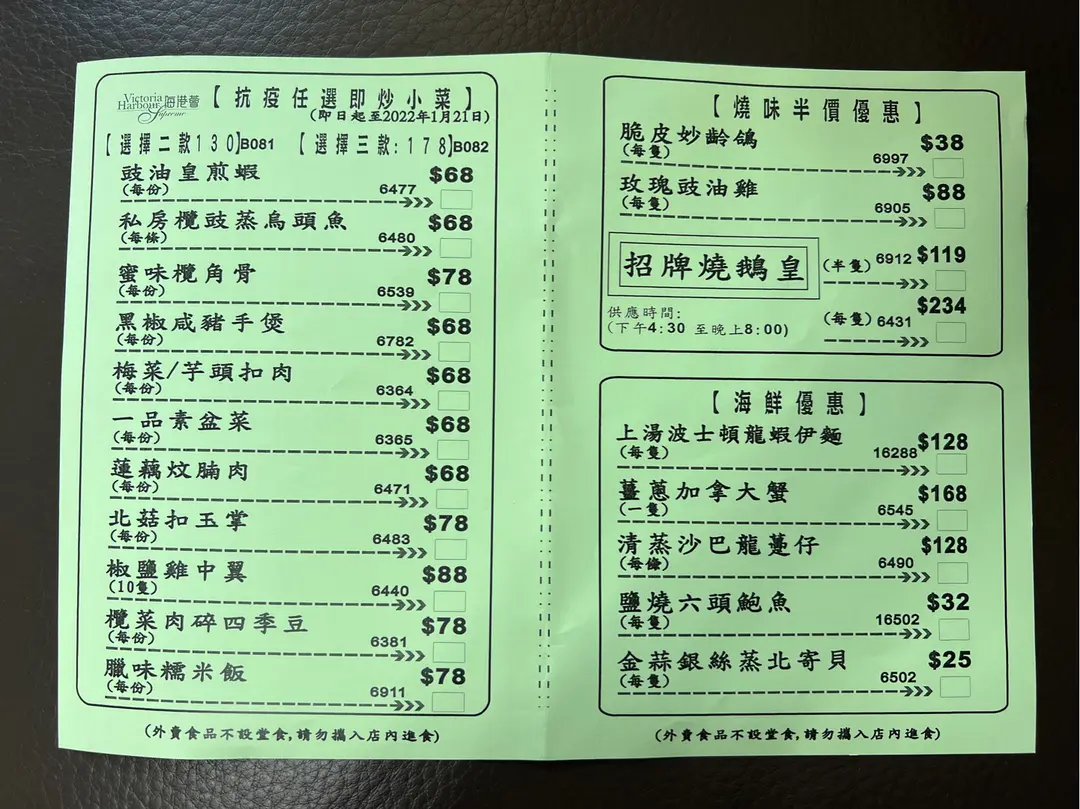 Victoria
Harbour 海港薈
Supreme
【抗疫任選即炒小菜】
(即日起至2022年1月21日)
【選擇二款130】B081 【選擇三款:178】B082
豉油皇煎蝦 $68
(每份) 6477
私房欖豉蒸烏頭魚 $68
(每條) 6480
蜜味欖角骨 $78
(每份) 6539
黑椒咸豬手煲 $68
(每份) 6782
梅菜/芋頭扣肉 $68
(每份) 6364
一品素盆菜 $68
(每份) 6365
蓮藕炆腩肉 $68
(每份) 6471
北菇扣玉掌 $78
(每份) 6483
椒鹽雞中翼 $88
(10隻) 6440
欖菜肉碎四季豆 $78
(每份) 6381
臘味糯米飯 $78
(每份) 6911
(外賣食品不設堂食,請勿攜入店內進食)
【燒味半價優惠】
脆皮妙齡鴿 $38
(每隻) 6997
玫瑰豉油雞 $88
(每隻) 6905
招牌燒鵝皇
(半隻) 6912 $119
(每隻) 6431 $234
供應時間:
(下午4:30 至晚上8:00)
【海鮮優惠】
上湯波士頓龍蝦伊麵 $128
(每隻) 16288
薑蔥加拿大蟹 $168
(一隻) 6545
清蒸沙巴龍躉仔 $128
(每條) 6490
鹽燒六頭鮑魚 $32
(每隻) 16502
金蒜銀絲蒸北寄貝 $25
(每隻) 6502
(外賣食品不設堂食,請勿攜入店內進食)